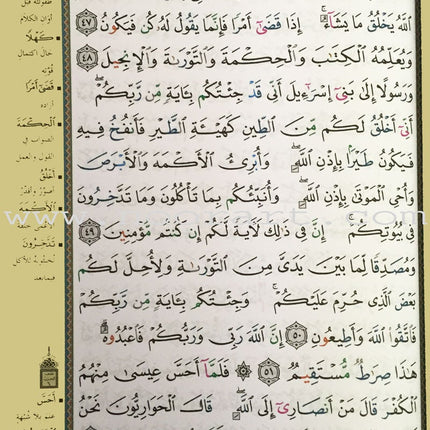 اللَّهُ يَخْلُقُ مَا يَشَاءُ ۚ إِذَا قَضَىٰ أَمْرًا فَإِنَّمَا يَقُولُ لَهُ كُن فَيَكُونُ ٤٧
وَيُعَلِّمُهُ الْكِتَابَ وَالْحِكْمَةَ وَالتَّوْرَاةَ وَالْإِنجِيلَ ٤٨
وَرَسُولًا إِلَىٰ بَنِي إِسْرَائِيلَ أَنِّي قَدْ جِئْتُكُم بِآيَةٍ مِّن رَّبِّكُمْ ۖ
أَنِّي أَخْلُقُ لَكُم مِّنَ الطِّينِ كَهَيْئَةِ الطَّيْرِ فَأَنفُخُ فِيهِ
فَيَكُونُ طَيْرًا بِإِذْنِ اللَّهِ ۖ وَأُبْرِئُ الْأَكْمَهَ وَالْأَبْرَصَ
وَأُحْيِي الْمَوْتَىٰ بِإِذْنِ اللَّهِ ۖ وَأُنَبِّئُكُم بِمَا تَأْكُلُونَ وَمَا تَدَّخِرُونَ
فِي بُيُوتِكُمْ ۚ إِنَّ فِي ذَٰلِكَ لَآيَةً لَّكُمْ إِن كُنتُم مُّؤْمِنِينَ ٤٩
وَمُصَدِّقًا لِّمَا بَيْنَ يَدَيَّ مِنَ التَّوْرَاةِ وَلِأُحِلَّ لَكُم
بَعْضَ الَّذِي حُرِّمَ عَلَيْكُمْ ۚ وَجِئْتُكُم بِآيَةٍ مِّن رَّبِّكُمْ
فَاتَّقُوا اللَّهَ وَأَطِيعُونِ ٥٠ إِنَّ اللَّهَ رَبِّي وَرَبُّكُمْ فَاعْبُدُوهُ ۗ
هَٰذَا صِرَاطٌ مُّسْتَقِيمٌ ٥١ ۞ فَلَمَّا أَحَسَّ عِيسَىٰ مِنْهُمُ
الْكُفْرَ قَالَ مَنْ أَنصَارِي إِلَى اللَّهِ ۖ قَالَ الْحَوَارِيُّونَ نَحْنُ
أوان الكلام
كَهْلًا
حال اكتمال
قوّته
قَضَىٰ أَمْرًا
أراده
الْحِكْمَةَ
الصواب في
القول والعمل
أَخْلُقُ
الْأَكْمَهَ
تَدَّخِرُونَ
أَحَسَّ
علم بلا شبهة